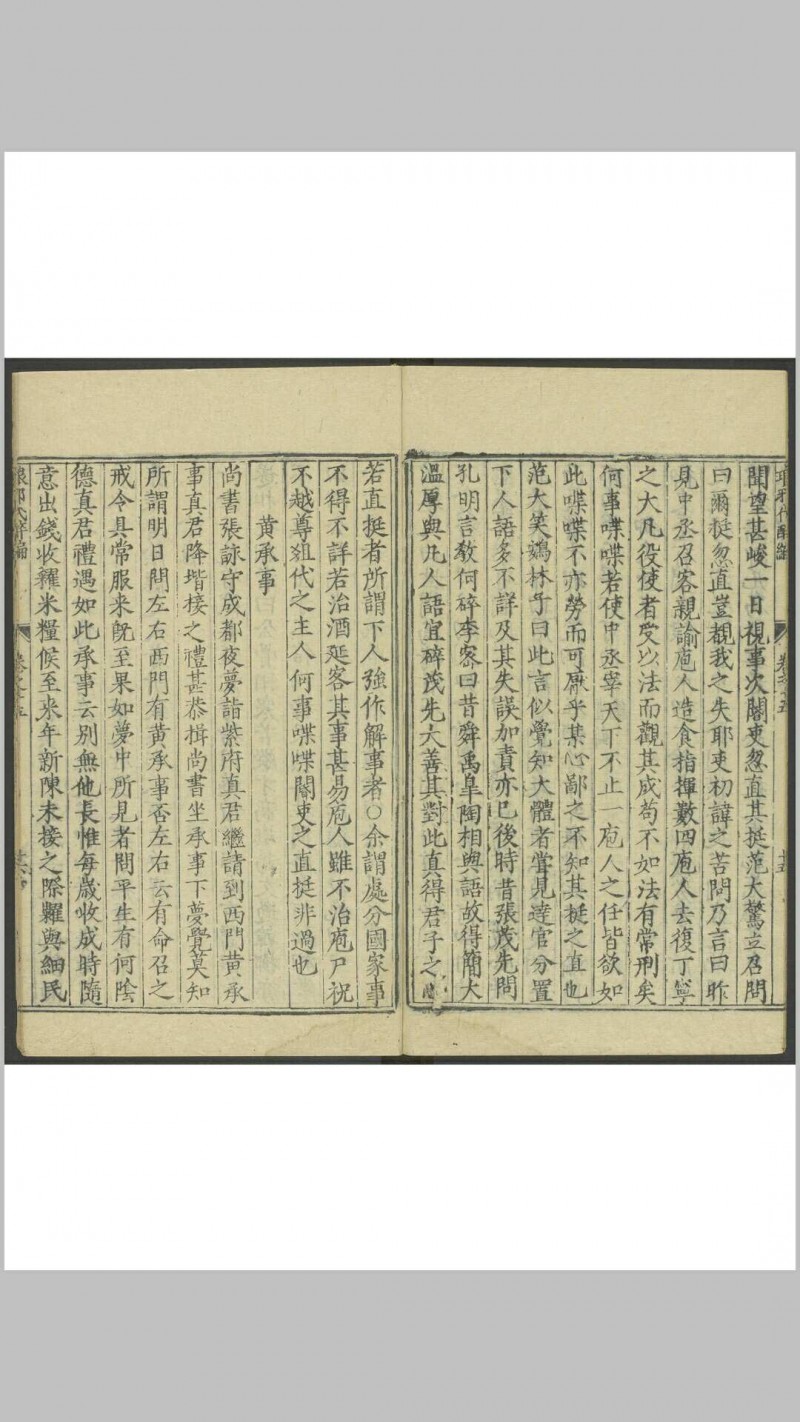 聞望甚峻一日視事次閽吏忽直其挺范大驚立召問
曰爾挺忽直豈覩我之失耶吏初諱之苦問乃言曰昨
見中丞召客親諭庖人造食指揮數四庖人去復丁寧
之大凡役使者受以法而觀其成苟不如法有常刑矣
何事喋喋若使中丞宰天下不止一庖人之任皆欲如
此喋喋不亦勞而可厭乎某心鄙之不知其挺之直也
范大笑鴻林子曰此言似覺知大體者嘗見達官分置
下人語多不詳及其失誤加責亦已後時昔張茂先問
孔明言教何碎李密曰昔舜禹皐陶相與語故得簡大
溫厚與凡人語宜碎茂先大善其對此真得君子之
若直挺者所謂下人強作解事者○余謂處分國家事
不得不詳若治酒延客其事甚易庖人雖不治庖尸祝
不越尊俎代之主人何事喋喋閽吏之直挺非過也
黄承事
尚書張詠守成都夜夢詣紫府真君繼請到西門黄承
事真君降堦接之禮甚恭揖尚書坐承事下夢覺莫知
所謂明日問左右西門有黄承事否左右云有命召之
戒令具常服来旣至果如夢中所見者問平生有何陰
德真君禮遇如此承事云别無他長惟每歲收成時隨
意出錢收糴米糧候至来年新陳未接之際糶與細民
卷之